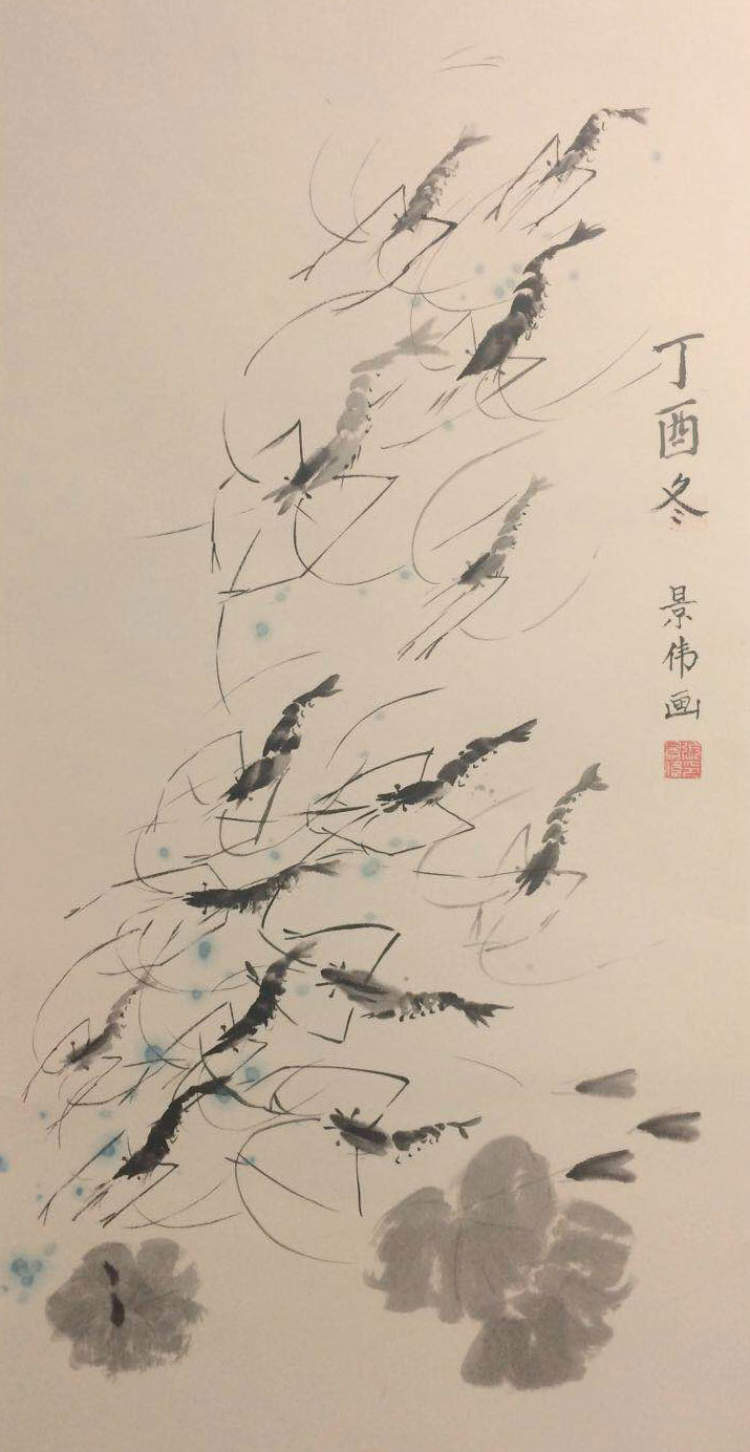 丁酉冬
景伟画